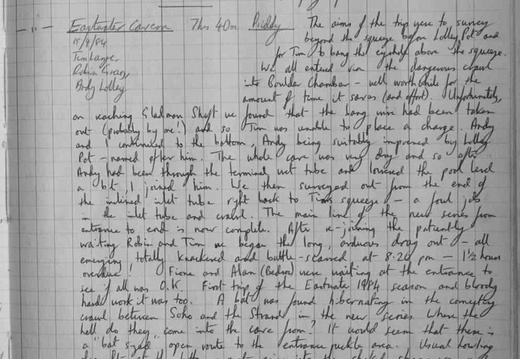 Eastwater Cavern 7hrs 40m Priddy The aims of the trip were to survey
15/9/84 beyond the squeeze upon Lolley Pot and
Tim Large for Tim to bang the eyehole above the squeeze.
Robin We all entered via the dangerous crawl
Andy Lolley into Boulder Chamber - well worthwhile for the
amount of time it saves (and effort). Unfortunately,
on reaching Gladman Shaft we found that the bang wire had been taken
out (probably by one!) and so Tim was unable to place a charge. Andy
and I continued to the bottom, Andy being suitably impressed by Lolley
Pot - named after him. The whole cave was very dry and so after
Andy had been through the terminal wet tube and lowered the pool level
a bit I joined him. We then surveyed out from the end of
the inclined inlet tube right back to Tim's squeeze - a foul job
in the inlet tube and crawl. The main line of the new series from
entrance to end is now complete. After re-joining the patiently
waiting Robin and Tim we began the long, arduous drag out - all
emerging totally knackered and battle-scarred at 8:20 pm - 1½ hours
overdue! Fiona and Alan (Bedson) were waiting at the entrance to
see if all was O.K. First trip of the Eastwater 1984 season and bloody
hard work it was too. A bat was found hibernating in the connecting
crawl between Soho and the Strand in the new series. Where the
hell do they come into the cave from? It would seem that there is
a "bat sized" open route to the entrance quickly area. Usual howling